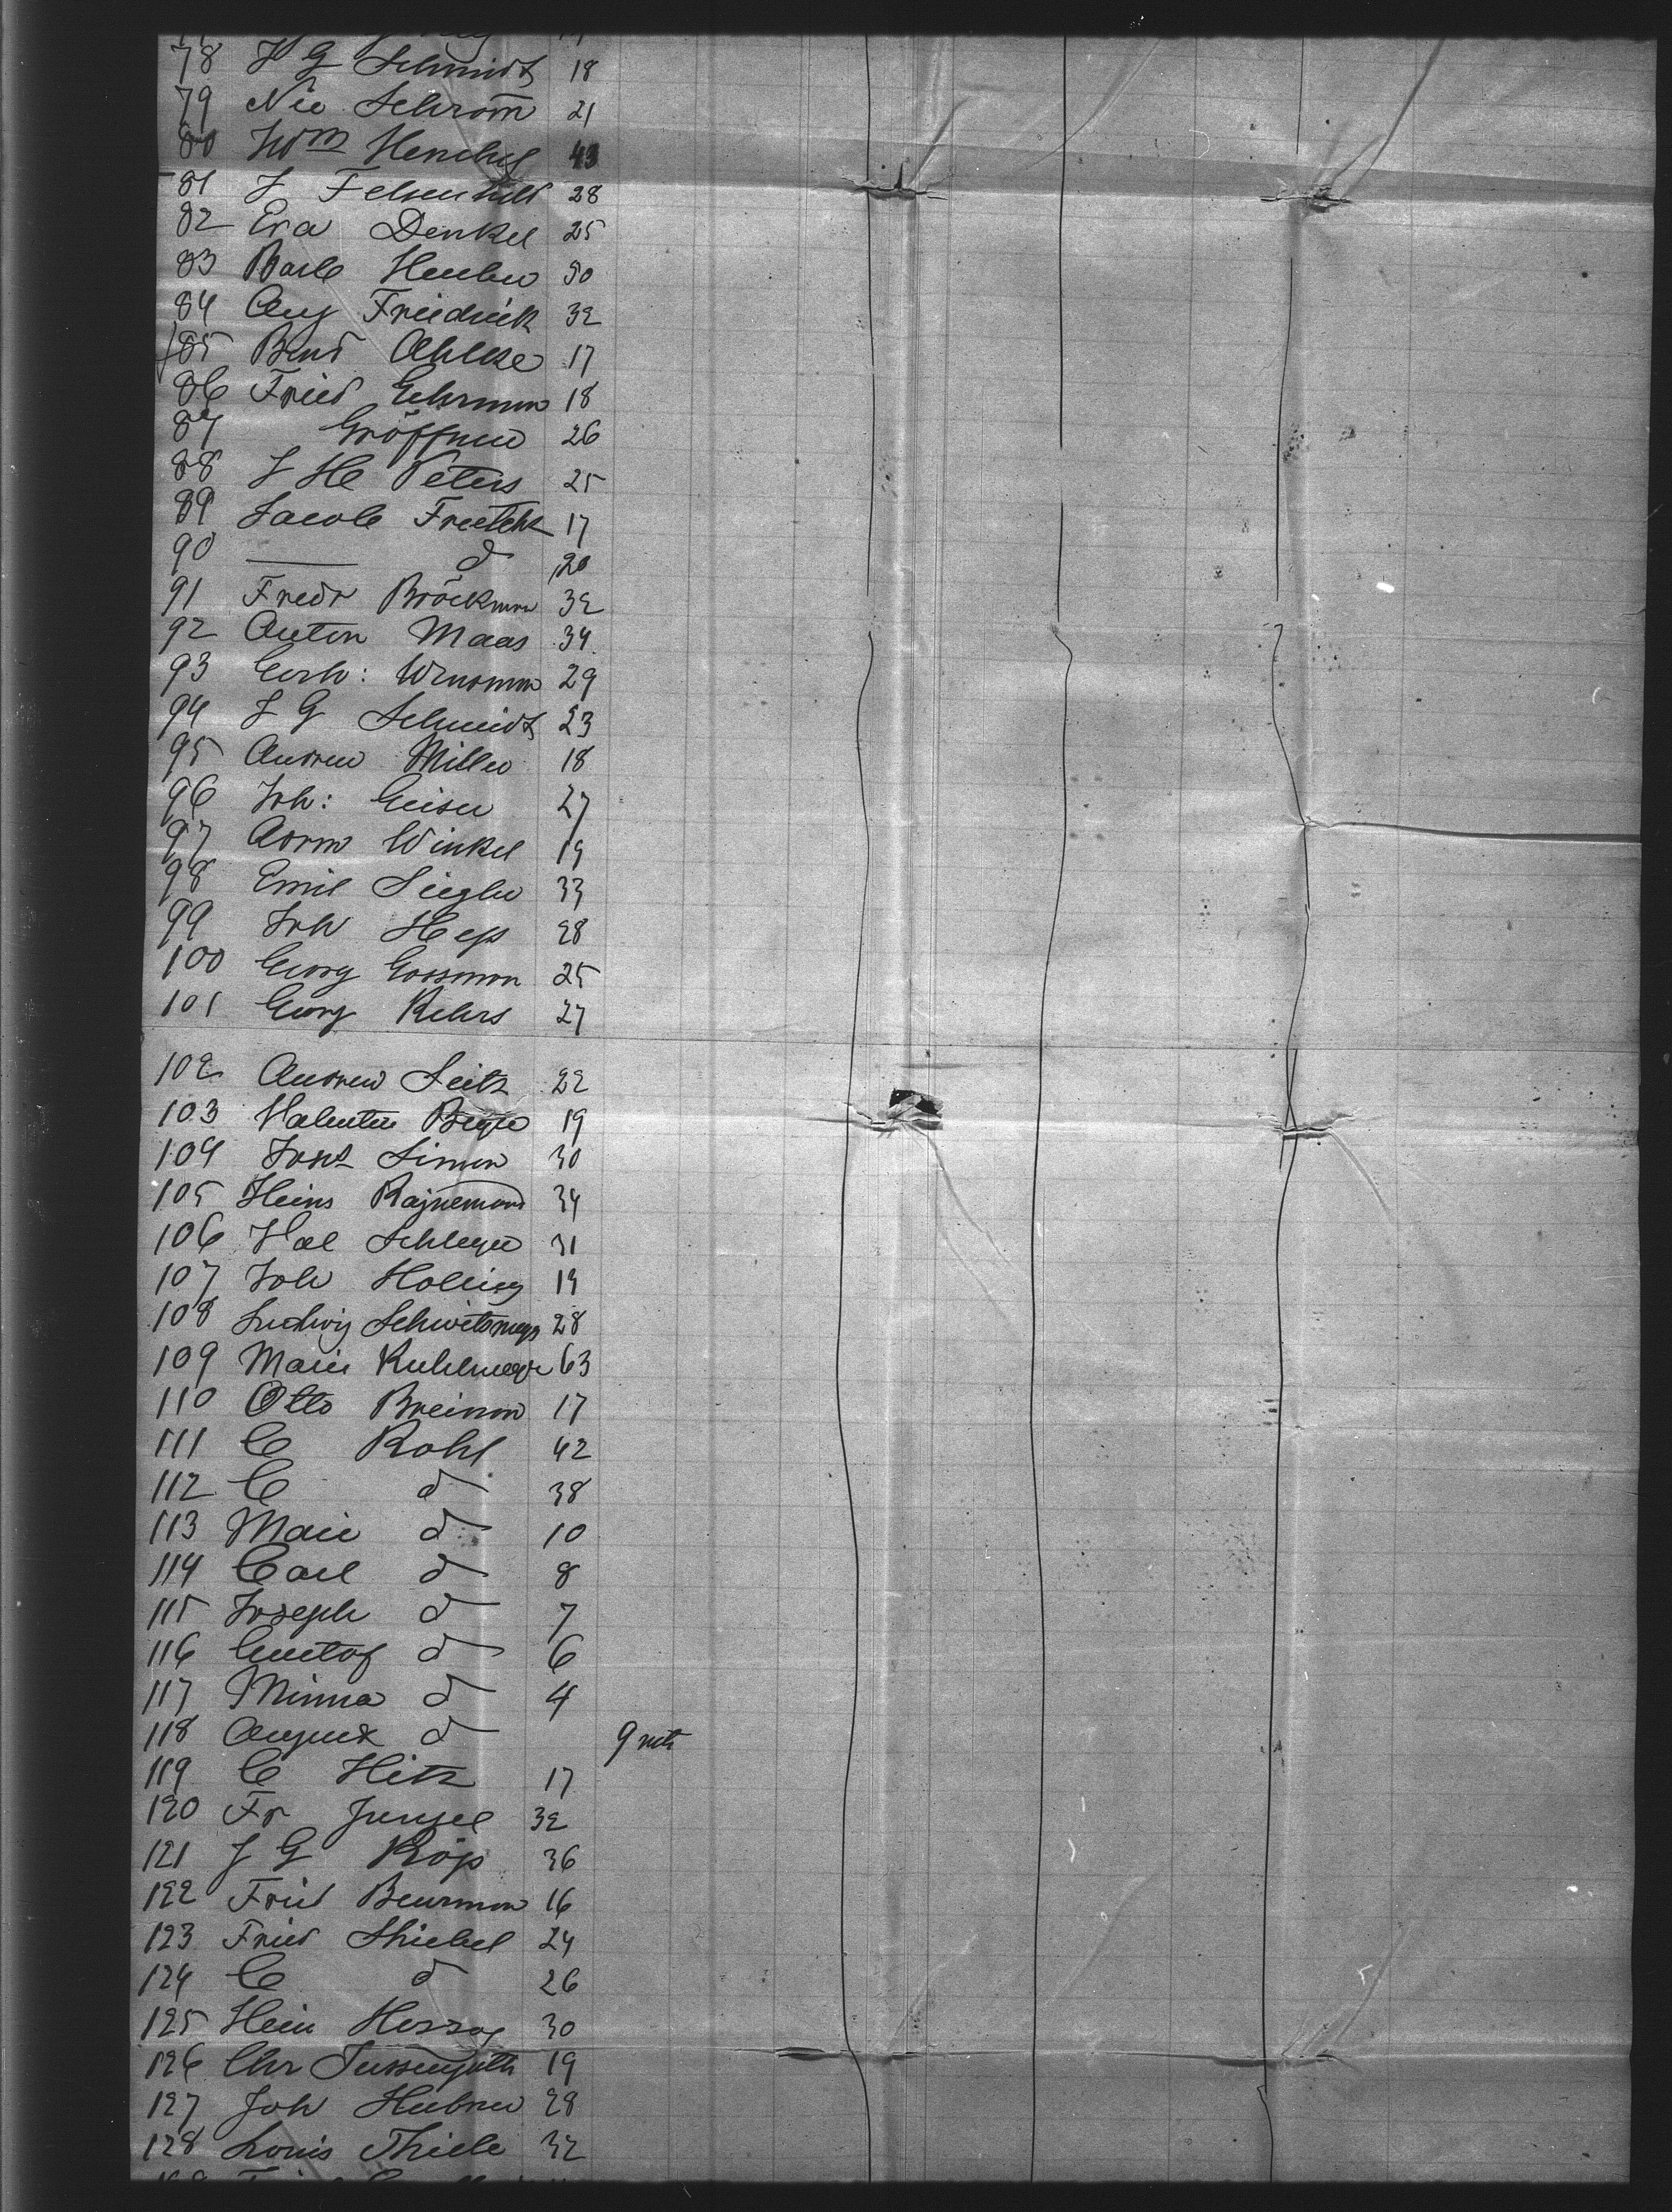 78 J G Schmidt 18
79 Nic Schrom 21
80 Wm Henchel 43
81 J Felsenheld 28
82 Eva Denkel 25
83 Barb Heuber 50
84 Aug Friedrick 32
85 Bend Ahlke 17
86 Fried Gehrman 18
87 Gröffner 26
88 J H Peters 25
89 Jacob 17
90 —— d 20
91 Fredr Bröckman 32
92 Anton Maas 34
93 Gerh: 29
94 J G Schmidt 23
95 Andrew Miller 18
96 Joh: Geiser 27
97 Winkel 19
98 Emil Siegler 33
99 Joh Hess 28
100 Georg Gossman 25
101 Georg Kehrs 27
102 Andrew Seitz 22
103 Valentin 19
104 Simon 30
105 Heins 34
106 Val Schleyer 31
107 Joh Holling 19
108 Ludwig 28
109 Marie Kuhlmeyer 63
110 Otto 17
111 C Rohl 42
112 C d 38
113 Marie d 10
114 Carl d 8
115 Joseph d 7
116 Gustaf d 6
117 Minna d 4
118 August d 9 mts
119 C Hitz 17
120 Fr Jungel 32
121 J G 36
122 Fried Beurman 16
123 Fried Thiebel 24
124 C d 26
125 Hein Herzog 30
126 Chr 19
127 Joh Hubner 28
128 Louis Thiele 32